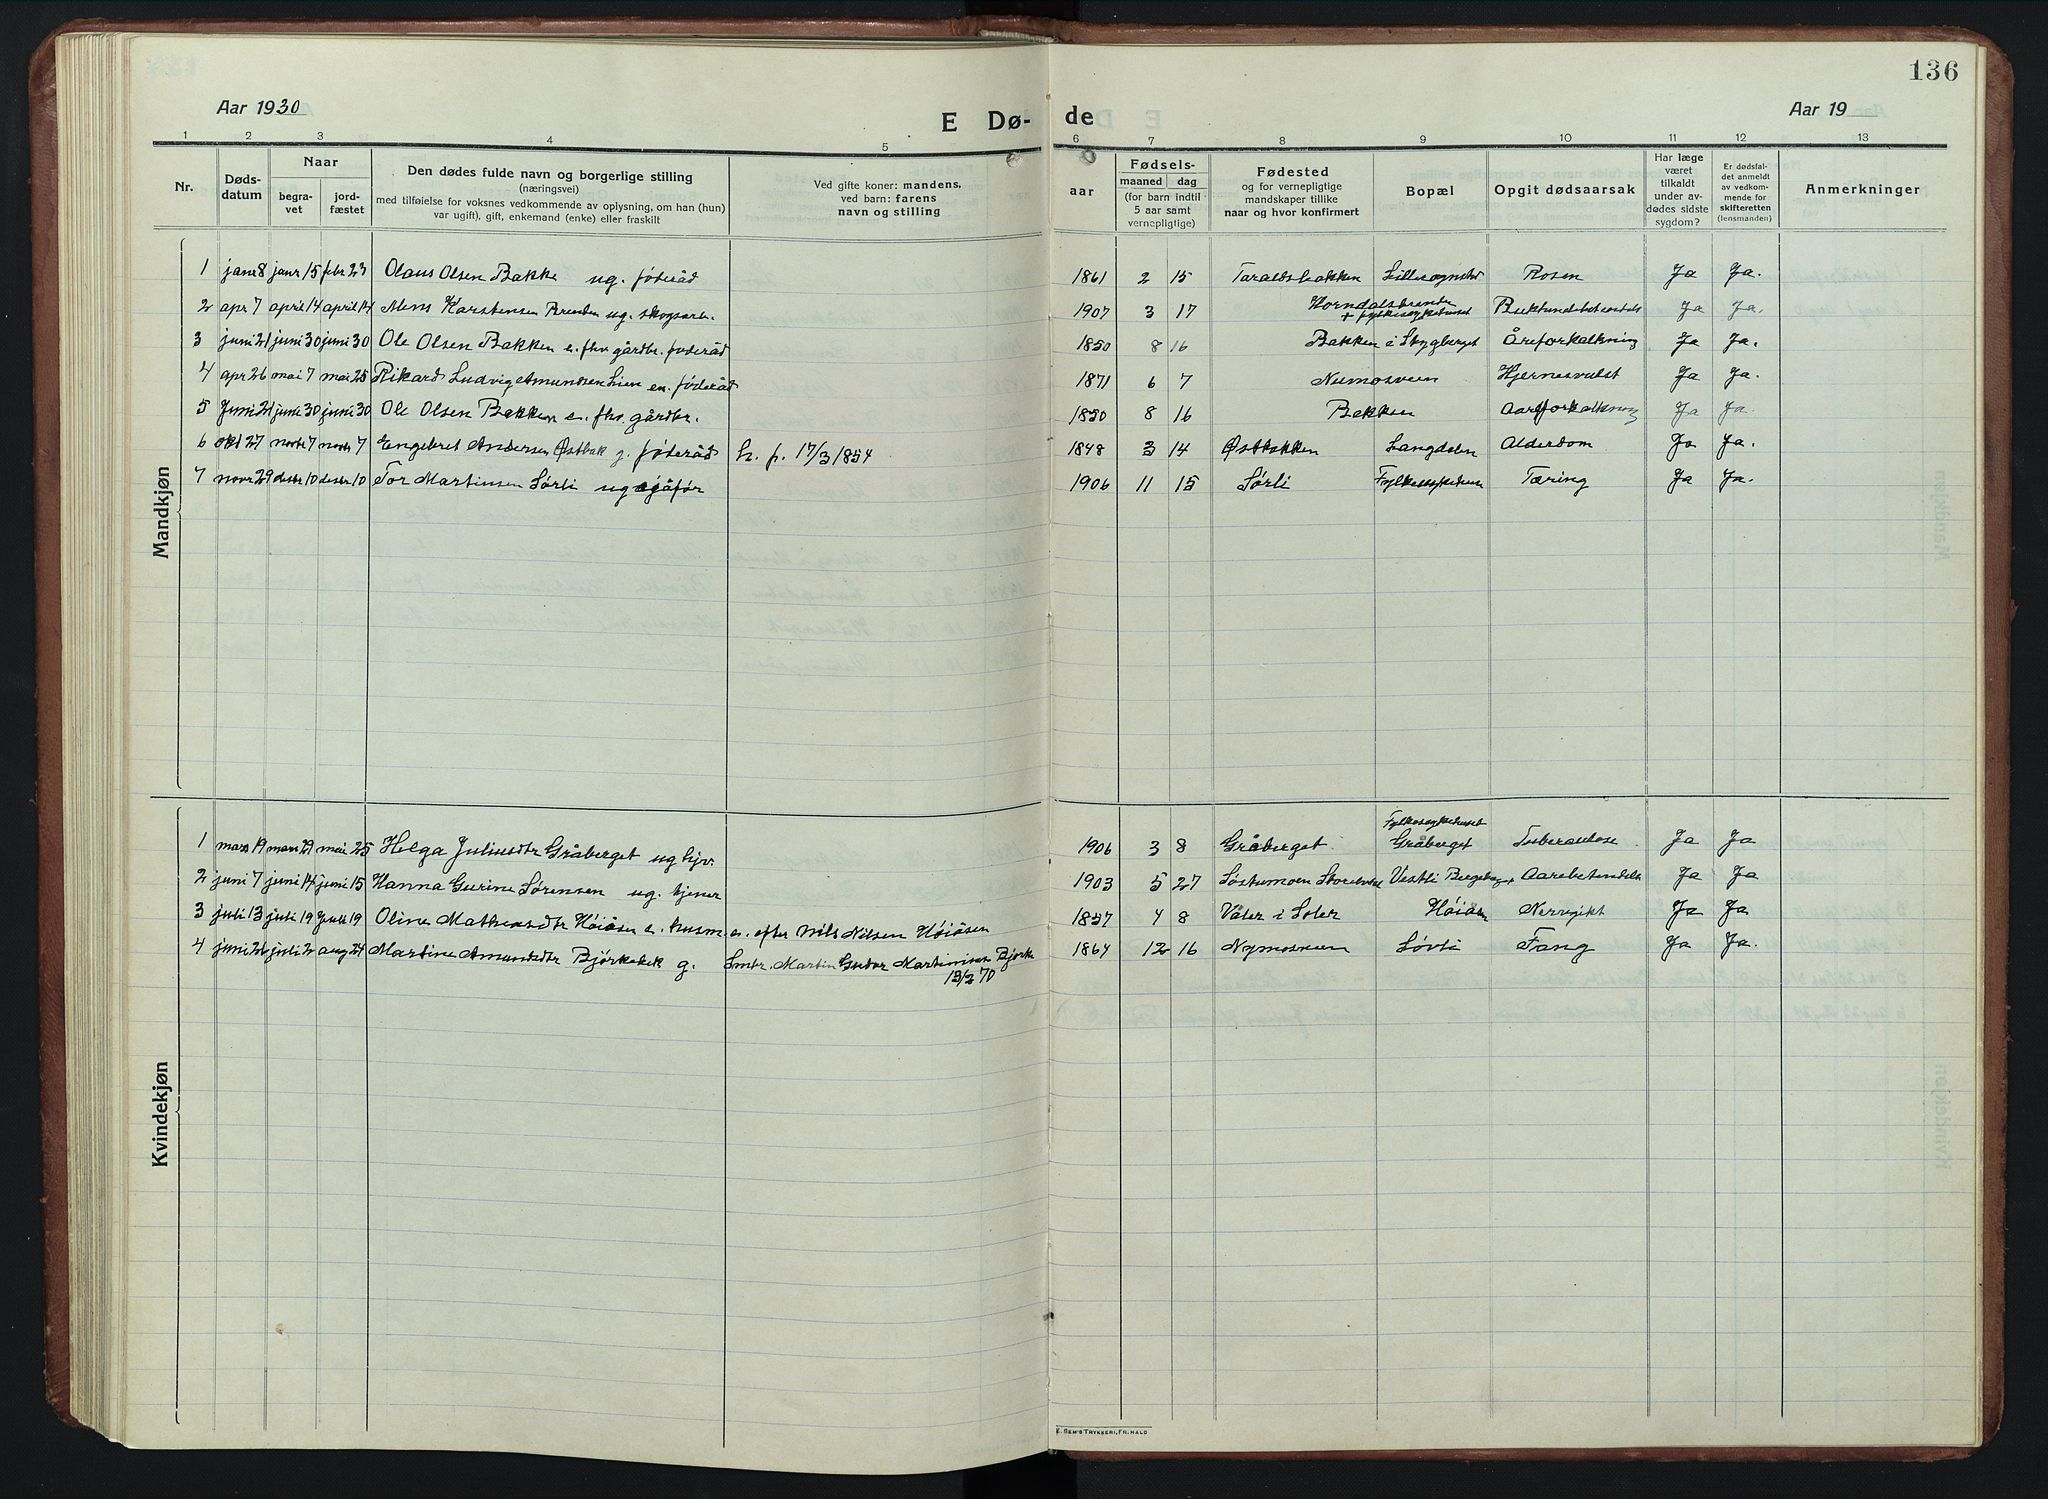 136
Aar 1930
E Dø-
de
Aar 19
1 2 3 4 5 6 7 8 9 10 11 12 13
Nr.
Døds-
datum
Naar
begra-
vet
jord-
fæstet
Den dødes fulde navn og borgerlige stilling
(næringsvei)
med tilføielse for voksnes vedkommende av oplysning, om han (hun)
var ugift), gift, enkemand (enke) eller fraskilt
Ved gifte koner: mandens,
ved barn: farens
navn og stilling
aar
Fødsels-
maaned dag
(for barn indtil
5 aar samt
vernepligtige)
Fødested
og for vernepligtige
mandskaper tillike
naar og hvor konfirmert
Bopæl
Opgit dødsaarsak
Har læge
været
tilkaldt
under av-
dødes sidste
sygdom?
Er dødsfal-
det anmeldt
av vedkom-
mende for
skifteretten
(lensmanden)
Anmerkninger
Mandkjøn
1 jan 8 janr 15 febr 23 Olaus Olsen Bakke ug. føderåd 1861 2 15 Taraldsbakken Rosen Ja Ja.
2 apr 7 april 14 april 14 Karstensen ug. skogsarb. 1907 3 17 + fylkessykehuset Ja Ja.
3 juni 21 juni 30 juni 30 Ole Olsen Bakken e. fhv. gårdbr. føderåd 1850 8 16 Bakken i Skygberget Åreforkalkning Ja Ja.
4 apr 26 mai 7 mai 25 Rikard Ludvig Amundsen Lien en. føderåd 1871 6 7 Numosveen Hjernesvulst Ja Ja.
5 Juni 21 juni 30 juni 30 Ole Olsen Bakken e. fhv. gårdbr. 1850 8 16 Bakken Aareforkalkning Ja Ja
6 okt 27 novbr 7 novbr 7 Engebret Andersen Østbak g. føderåd h. f. 17/3 1854 1848 3 14 Østbakken Langdalen Alderdom Ja Ja.
7 novr 29 desbr 10 desbr 10 Tor Martinsen Sørli ug 1906 11 15 Sørli Fylkessykehuset Tæring Ja Ja.
Kvindekjøn
Fylkessykehuset
1 mars 19 mars 29 mai 25 Helga Juliusdtr Gråberget ug hjv. 1906 3 8 Gråberget Gråberget Tuberculose Ja Ja
2 juni 7 juni 14 juni 15 Hanna Gurine Sørensen ug. tjener 1903 5 27 Vestli Aarebetendelse Ja Ja
3 juli 13 juli 19 juli 19 Oline Høiåsen e. husm. e. efter Nils Nilsen Høiåsen 1857 4 8 Våler i Soler Høiåsen Nervegikt Ja Ja
4 juni 26 juli 2 aug 24 Martine Amundsdtr Bjørkebek g. Smbr. Martin Gudor Martinisen Bjørke 1864 12 16 Nymosveen Løvli Fang Ja Ja.
13/2 70
E. SEM'S TRYKKERI, FR.HALD